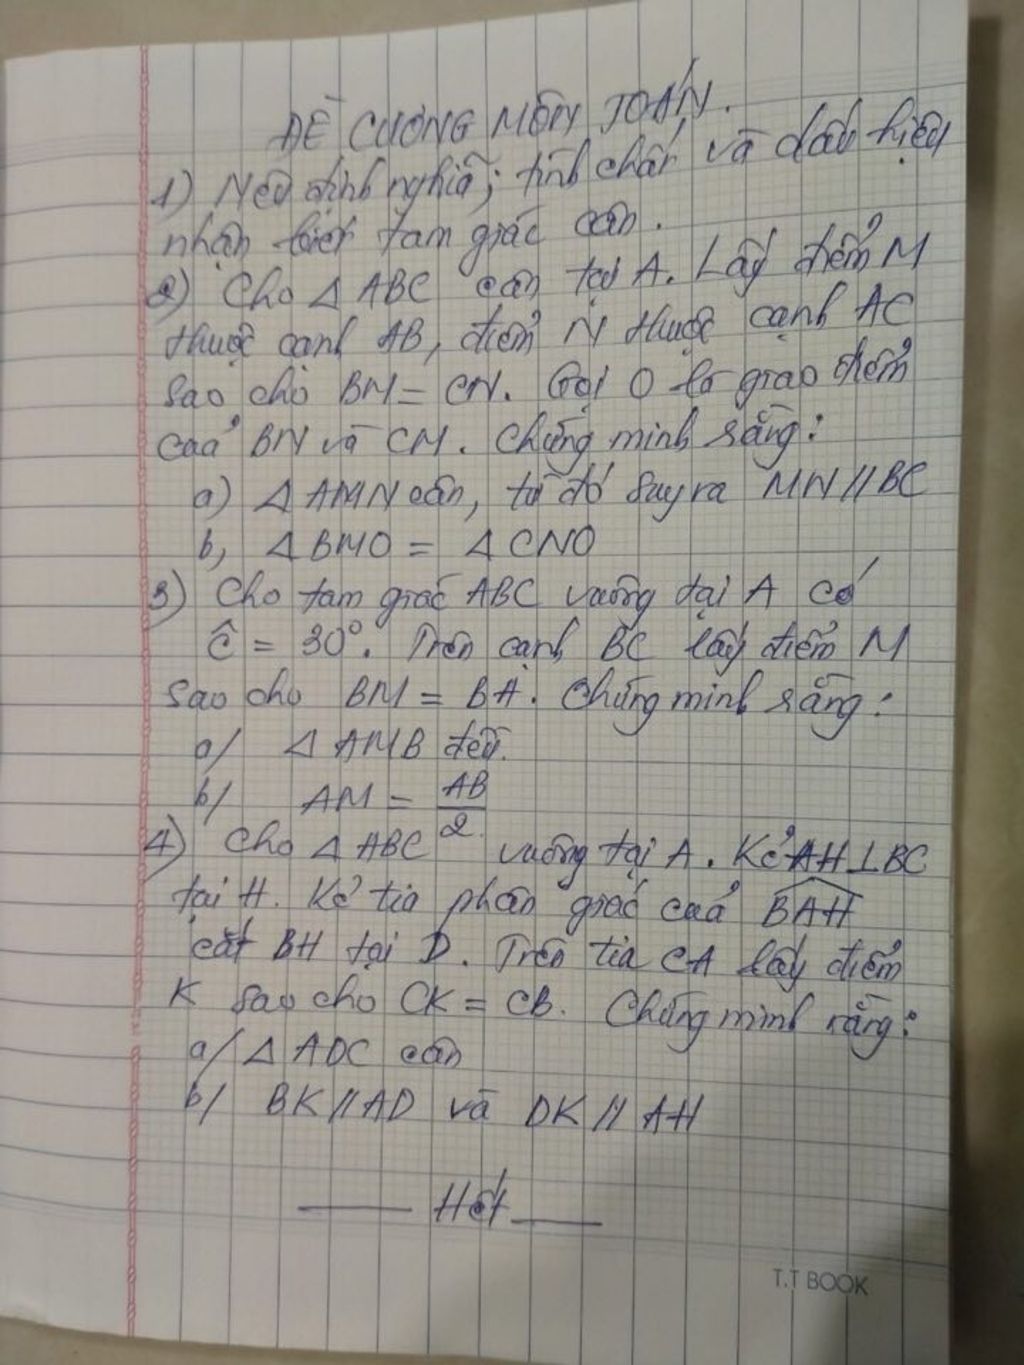 ĐỀ CƯƠNG MÔN TOÁN.
1) Nêu định nghĩa; tính chất và dấu hiệu
nhận biết tam giác cân.
2) Cho Δ ABC cân tại A. Lấy điểm M
thuộc cạnh AB, điểm N thuộc cạnh AC
sao cho BM = CN. Gọi O là giao điểm
của BN và CM. Chứng minh rằng:
a) Δ AMN cân, từ đó suy ra MN // BC
b, Δ BMO = Δ CNO
3) Cho tam giác ABC vuông tại A có
Ĉ = 30°. Trên cạnh BC lấy điểm M
sao cho BM = BA. Chứng minh rằng:
a/ Δ AMB đều.
b/ AM = AB/2.
4) Cho Δ ABC vuông tại A. Kẻ AH ⊥ BC
tại H. Kẻ tia phân giác của BAH
cắt BH tại D. Trên tia CA lấy điểm
K sao cho CK = CB. Chứng minh rằng:
a/ Δ ADC cân
b/ BK // AD và DK // AH
Hết
T.T BOOK